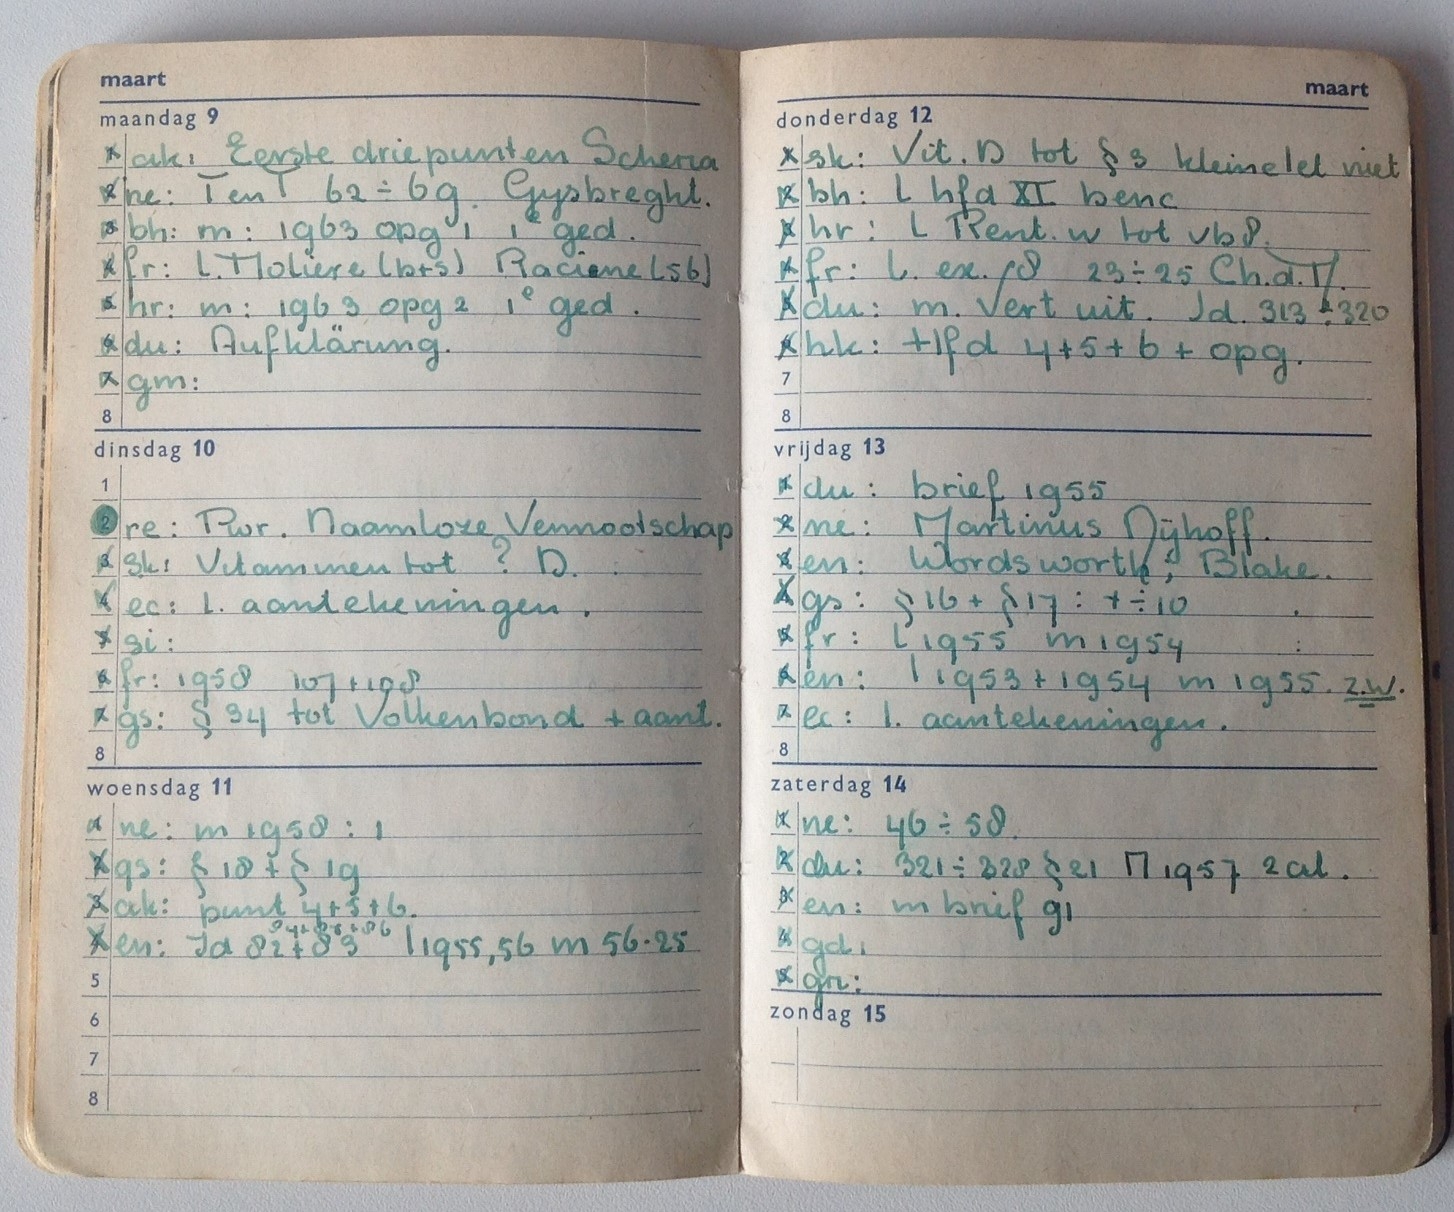 maart
maandag 9
1 ak: Eerste drie punten Schema
2 ne: Ten T 62 ÷ 69. Gysbreght.
3 bh: m: 1963 opg 1 1e ged.
4 fr: l. Molière (b+s) Raciene (56)
5 hr: m: 1963 opg 2 1e ged.
6 du: Aufklärung.
7 gm:
8
dinsdag 10
1
2 re: Naamloze Vennootschap
3 sk: Vitaminen tot ? D.
4 ec: l. aantekeningen.
5 si:
6 fr: 1958 107+108
7 gs: § 34 tot Volkenbond + aant.
8
woensdag 11
1 ne: m 1958 : 1
2 gs: § 18 + § 19
3 ak: punt 4+5+6.
84+85+86
4 en: Jd 82+83 l 1955,56 m 56.25
5
6
7
8
maart
donderdag 12
1 sk: Vit. D tot § 3 kleine let niet
2 bh: L hfd XI benc
3 hr: L Rent. w tot vb8.
4 fr: L. ex. 23÷25 Ch.d.M.
5 du: m. Vert uit. Jd. 313÷320
6 hk: Hfd 4+5+6 + opg.
7
8
vrijdag 13
1 du: brief 1955
2 ne: Martinus Nijhoff.
3 en: Wordsworth, Blake.
4 gs: § 16 + § 17 : ÷ 10
5 fr: L 1955 m 1954
6 en: l 1953 + 1954 m 1955. z.w.
7 ec: l. aantekeningen.
8
zaterdag 14
1 ne: 46 ÷ 58.
2 du: 321 ÷ 328 § 21 M 1957 2 al.
3 en: m brief 91
4 gd:
5 gn:
zondag 15